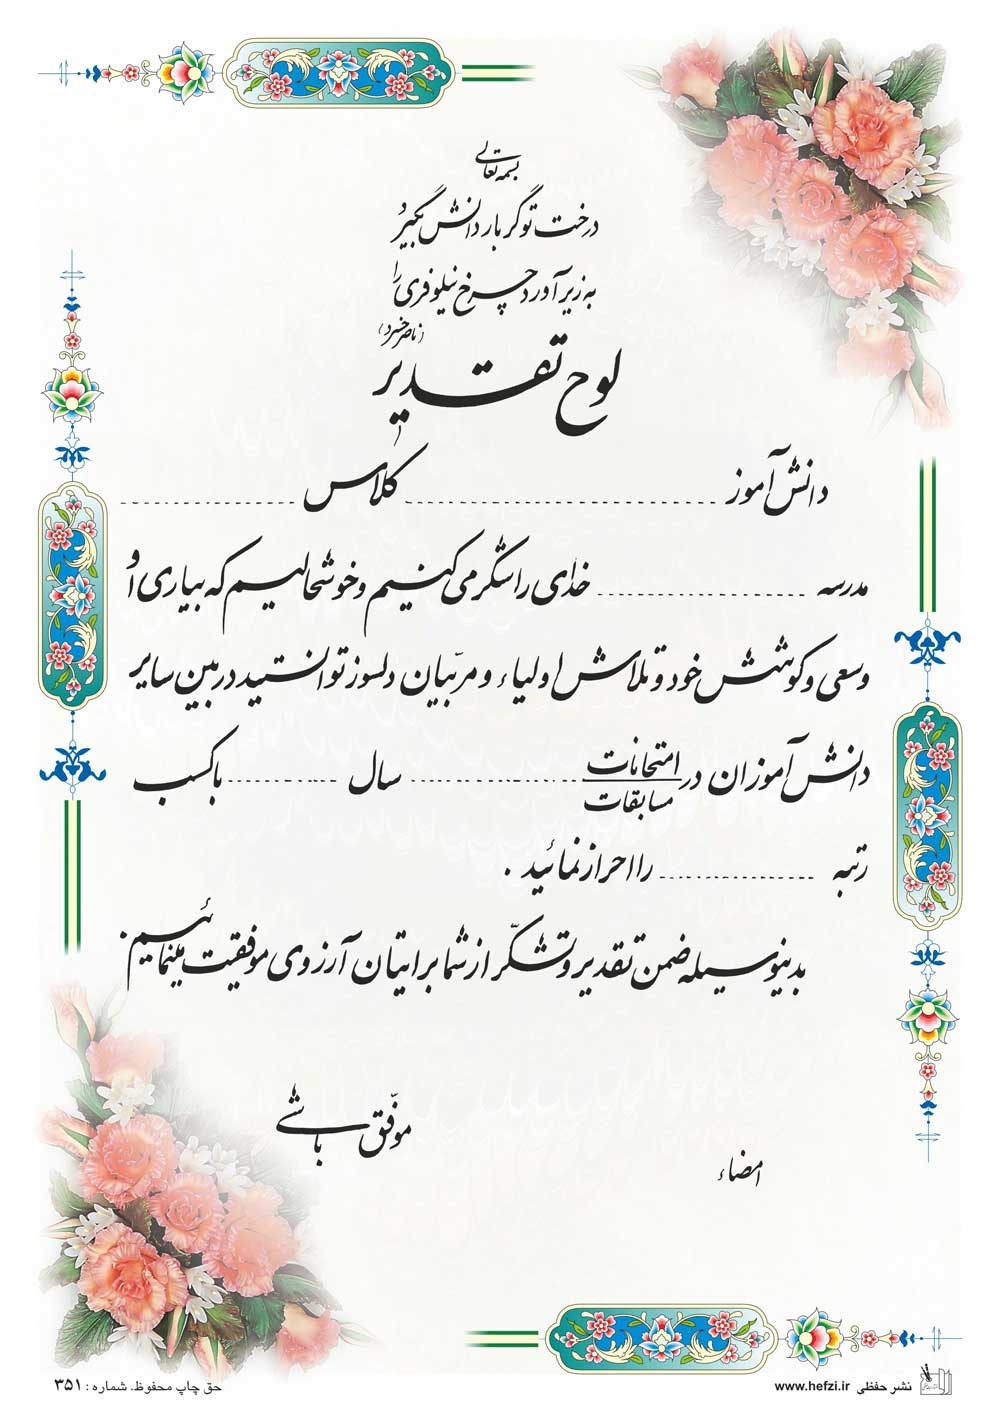 بسمه تعالی
درخت تو گر بار دانش بگیرد
به زیر آورد چرخ نیلوفری را
(ناصر خسرو)
لوح تقدیر
دانش آموز ........................ کلاس ................
مدرسه ................ خدای را شکر می کنیم و خوشحالیم که بیاری او
وسعی و کوشش خود و تلاش اولیاء و مربّیان دلسوز توانستید در بین سایر
دانش آموزان در امتحانات ................ سال ............ با کسب
مسابقات
رتبه ................ را احراز نمائید .
بدینوسیله ضمن تقدیر و تشکّر از شما برایتان آرزوی موفقیت مینمائیم.
موفّق باشی
امضاء
نشر حفظی www.hefzi.ir
حق چاپ محفوظ. شماره : ۳۵۱